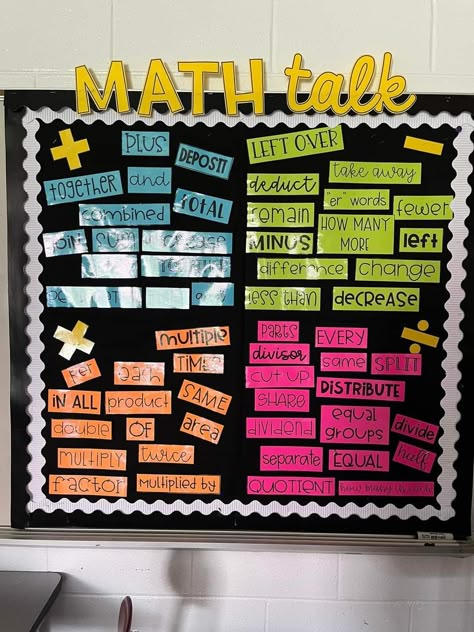 +MATH talk
+
PLUS
DEPOSIT
together
and
combined
TOTAL
JOIN
SUM
LEFT OVER
take away
deduct
"er" words
fewer
remain
HOW MANY MORE
MINUS
left
difference
change
less than
decrease
×
multiple
per
each
TIMES
IN ALL
product
SAME
double
OF
area
MULTIPLY
twice
factor
multiplied by
÷
PARTS
EVERY
divisor
same
SPLIT
CUT UP
DISTRIBUTE
SHARE
equal groups
dividend
divide
separate
EQUAL
half
QUOTIENT